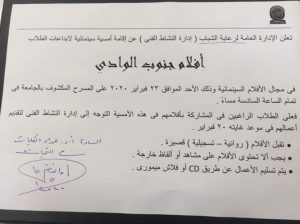 تعلن الإدارة العامة لرعاية الشباب ( إدارة النشاط الفنى ) عن إقامة أمسية سينمائية لابداعات الطلاب
أفلام جنوب الوادي
في مجال الأفلام السينمائية وذلك الأحد الموافق ٢٣ فبراير ٢٠٢٠ على المسرح المكشوف بالجامعة في
تمام الساعة السادسة مساءً .
فعلى الطلاب الراغبين في المشاركة بأفلامهم في هذه الأمسية التوجه إلى إدارة النشاط الفنى لتقديم
أعمالهم في موعد غايته ٢٠ فبراير .
تقبل الأفلام ( روائية – تسجيلية ) قصيرة .
يجب ألا تحتوى الأفلام على مشاهد أو ألفاظ خارجة .
يتم تسليم الأعمال عن طريق CD أو فلاش ميمورى .
السادة أ.د. عمداء الكليات